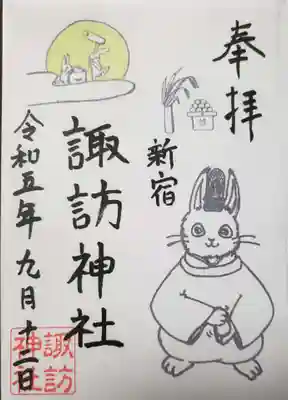 奉拝
新宿
諏訪神社
令和五年九月十三日
諏訪神社